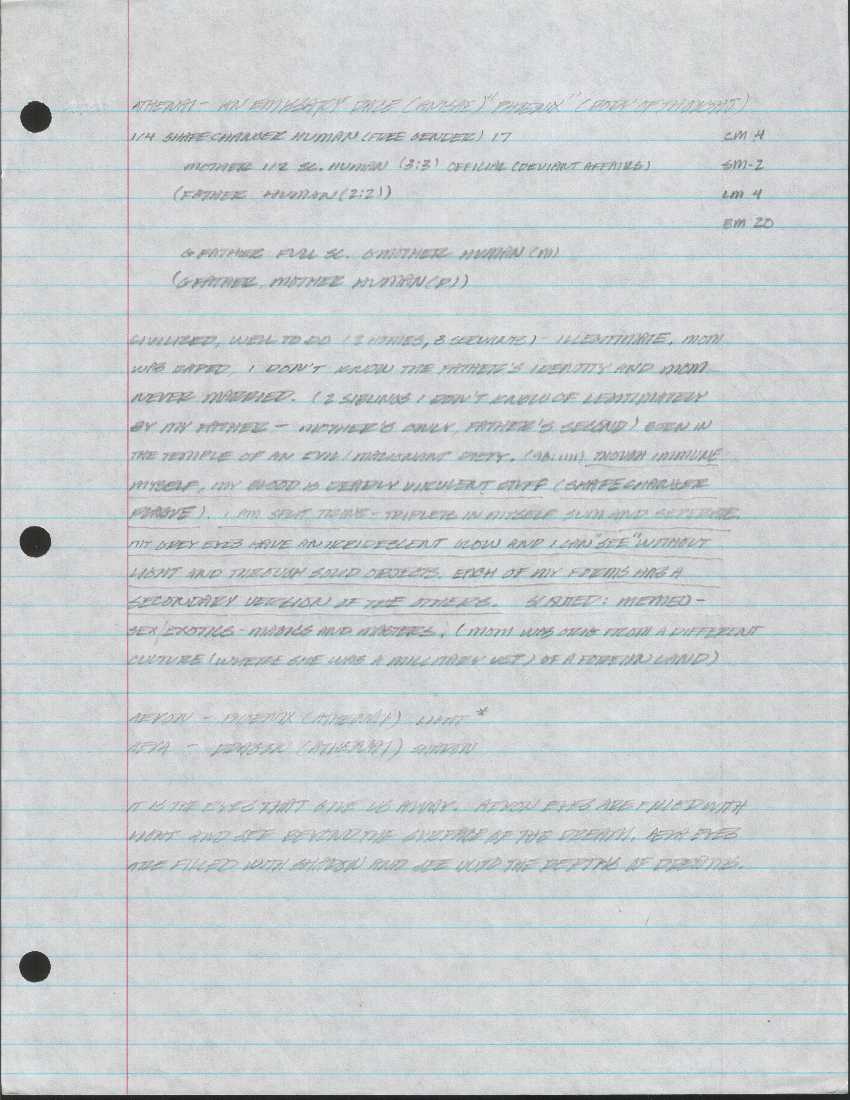 ATHENAI - AN EMISSARY "PHENIX" (BODY OF THOUGHT)
1/4 SHAPECHANGER HUMAN (FREE GENDER) 17 CM 4
MOTHER 1/2 SC. HUMAN (3:3) OFFICIAL (DEVIANT AFFAIRS) SM-2
(FATHER HUMAN (2:2)) LM 4
EM 20
GFATHER FULL SC. GMOTHER HUMAN (M)
(GFATHER, MOTHER HUMAN (D))
CIVILIZED, WELL TO DO (3 SERVANTS) - ILLEGITIMATE, MOM
WAS RAPED, I DON'T KNOW THE FATHER'S IDENTITY AND MOM
NEVER MARRIED. (2 SIBLINGS I DON'T KNOW OF LEGITIMATELY
BY MY FATHER - MOTHER'S ONLY, FATHER'S SECOND) BORN IN
THE TEMPLE OF AN EVIL/MALIGNANT DIETY. THOUGH IMMUNE
MYSELF, MY BLOOD IS DEADLY VIRULENT STUFF (SHAPECHANGER
PLAGUE). I AM SPLIT - TRIPLETS IN MYSELF SUM AND SEPERATE.
MY GREY EYES HAVE AN IRRIDESCENT GLOW AND I CAN "SEE" WITHOUT
LIGHT AND THROUGH SOLID OBJECTS. EACH OF MY FORMS HAS A
SECONDARY VERSION OF THE OTHERS.
SEX/EXOTICS - MAGICS AND MASTERS. (MOM WAS ORIG FROM A DIFFERENT
CULTURE (WHERE SHE WAS A MILLITARY VET) OF A FOREIGN LAND)
AERON - PHOENIX (ATHENAI) LIGHT *
- DRAGON (ATHENAI) SHADOW
IT IS THE EYES THAT GIVE US AWAY. AERON EYES ARE FILLED WITH
LIGHT AND SEE BEYOND THE SURFACE OF THE DREAM. EYES
ARE FILLED WITH SHADOW AND SEE INTO THE DEPTHS OF DREAMS.